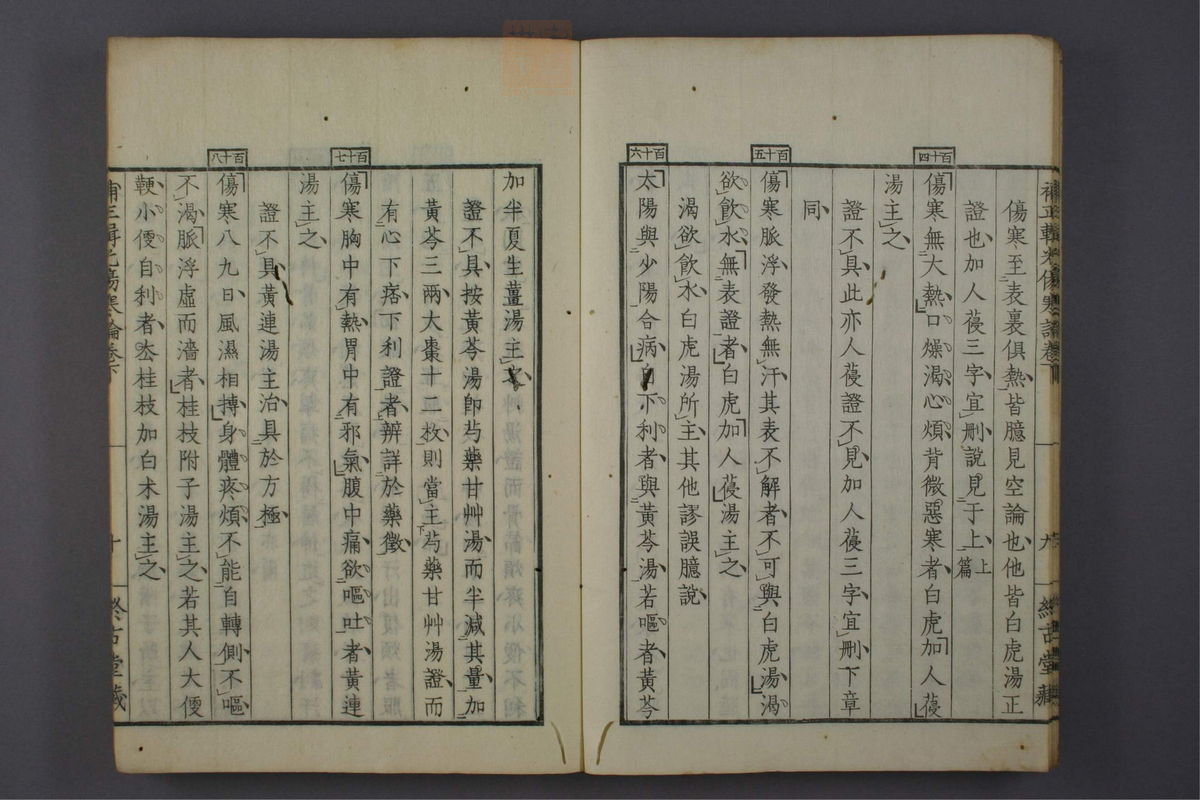 傷寒至表裏俱熱皆臆見空論也他皆白虎湯正
證也加人葠三字宜刪說見于上上篇
百十四
傷寒無大熱口燥渴心煩背微惡寒者白虎加人葠
湯主之
證不具此亦人葠證不見加人葠三字宜刪下章
同
百十五
傷寒脈浮發熱無汗其表不解者不可與白虎湯渴
欲飲水無表證者白虎加人葠湯主之
渴欲飲水白虎湯所主其他謬誤臆說
百十六
太陽與少陽合病自下利者與黃芩湯若嘔者黃芩
加半夏生薑湯主之
證不具按黃芩湯卽芍藥甘艸湯而半減其量加
黃芩三兩大棗十二枚則當主芍藥甘艸湯證而
有心下痞下利證者辨詳於藥徵
百十七
傷寒胸中有熱胃中有邪氣腹中痛欲嘔吐者黃連
湯主之
證不具黃連湯主治具於方極
百十八
傷寒八九日風濕相搏身體疼煩不能自轉側不嘔
不渴脈浮虛而濇者桂枝附子湯主之若其人大便
鞕小便自利者去桂枝加白朮湯主之